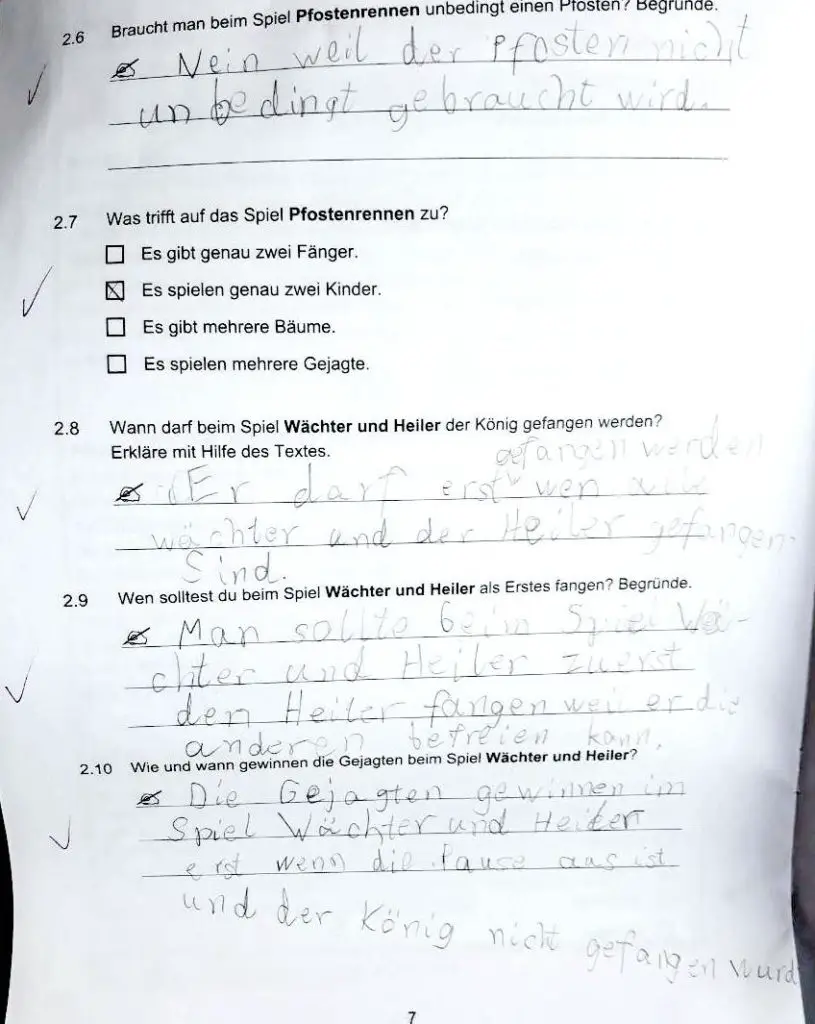 2.6 Braucht man beim Spiel Pfostenrennen unbedingt einen Pfosten? Begründe.
Nein weil der Pfosten nicht
unbedingt gebraucht wird.
2.7 Was trifft auf das Spiel Pfostenrennen zu?
Es gibt genau zwei Fänger.
Es spielen genau zwei Kinder.
Es gibt mehrere Bäume.
Es spielen mehrere Gejagte.
2.8 Wann darf beim Spiel Wächter und Heiler der König gefangen werden?
Erkläre mit Hilfe des Textes.
gefangen werden
Er darf erst wen alle
wächter und der Heiler gefangen
Sind.
2.9 Wen solltest du beim Spiel Wächter und Heiler als Erstes fangen? Begründe.
Man sollte beim Spiel Wä-
chter und Heiler zuerst
den Heiler fangen weil er die
anderen befreien kann.
2.10 Wie und wann gewinnen die Gejagten beim Spiel Wächter und Heiler?
Die Gejagten gewinnen im
Spiel Wächter und Heiler
erst wenn die Pause aus ist
und der König nicht gefangen wurd
7